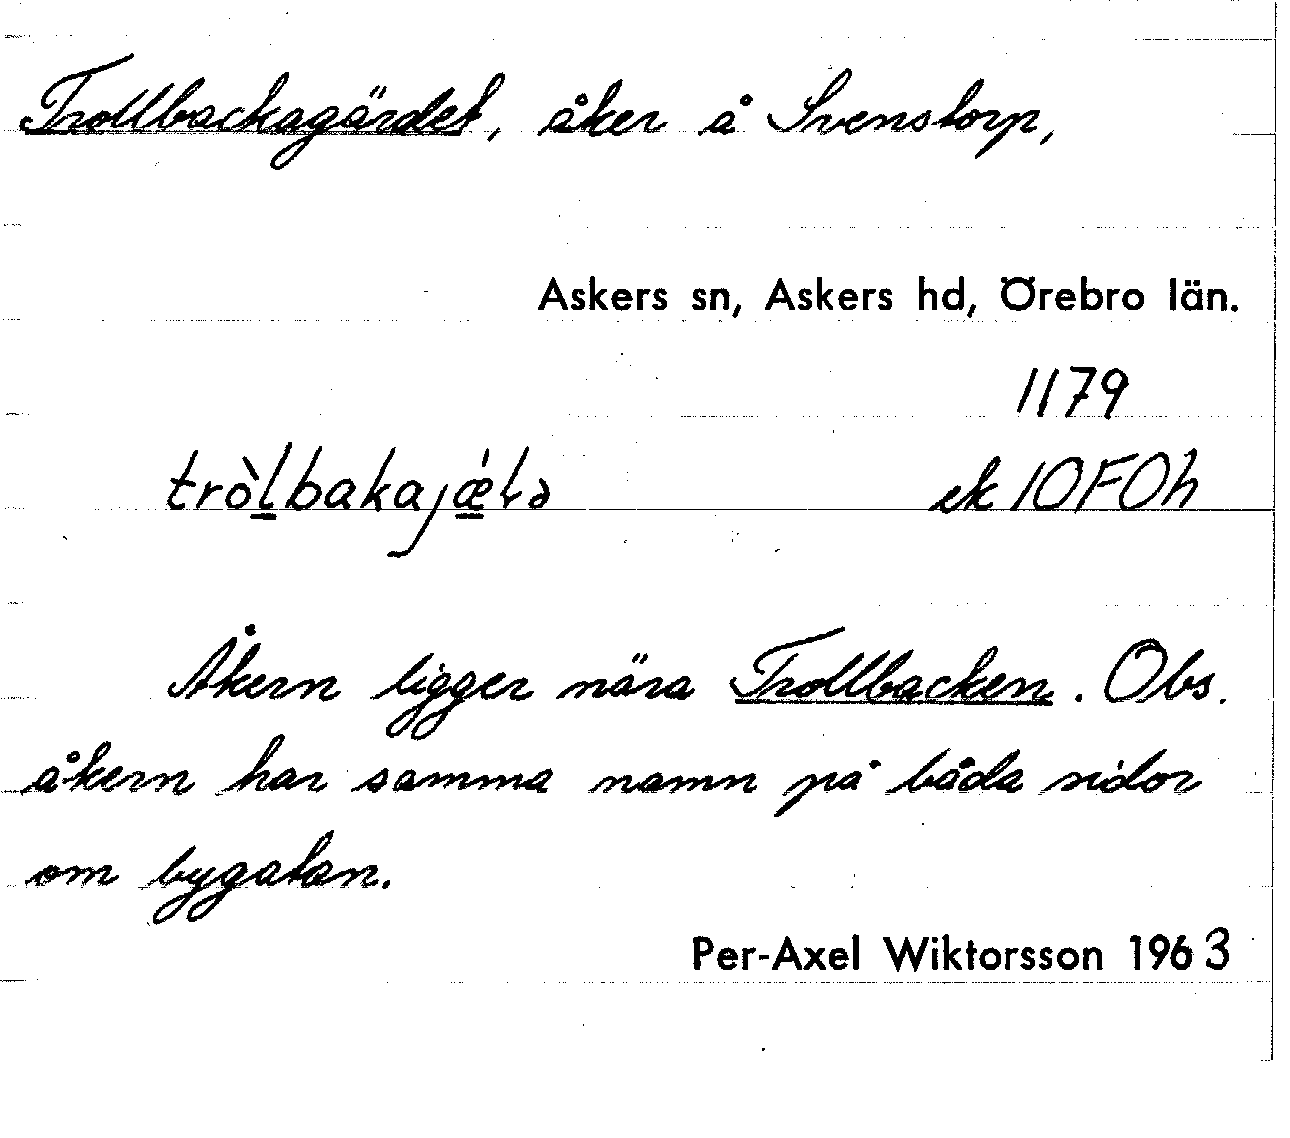 Trollbackagärdet, åker å Svenstorp,
Askers sn, Askers hd, Örebro län.
1179
tròl̠bakajǽ̠ɫə ek 10F0h
Åkern ligger nära Trollbacken. Obs.
åkern har samma namn på båda sidor
om bygatan.
Per-Axel Wiktorsson 1963